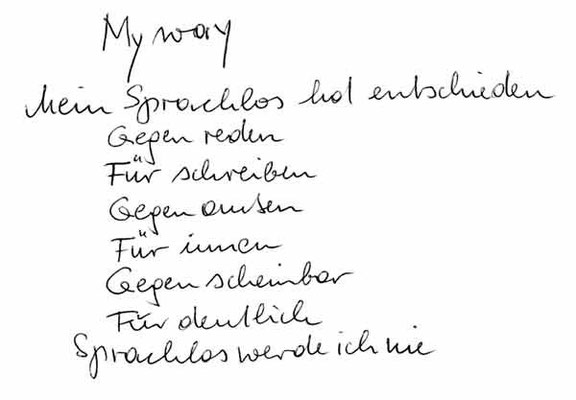 My way
Mein Sprachlos hat entschieden
Gegen reden
Für schreiben
Gegen aussen
Für innen
Gegen scheinbar
Für deutlich
Sprachlos werde ich nie